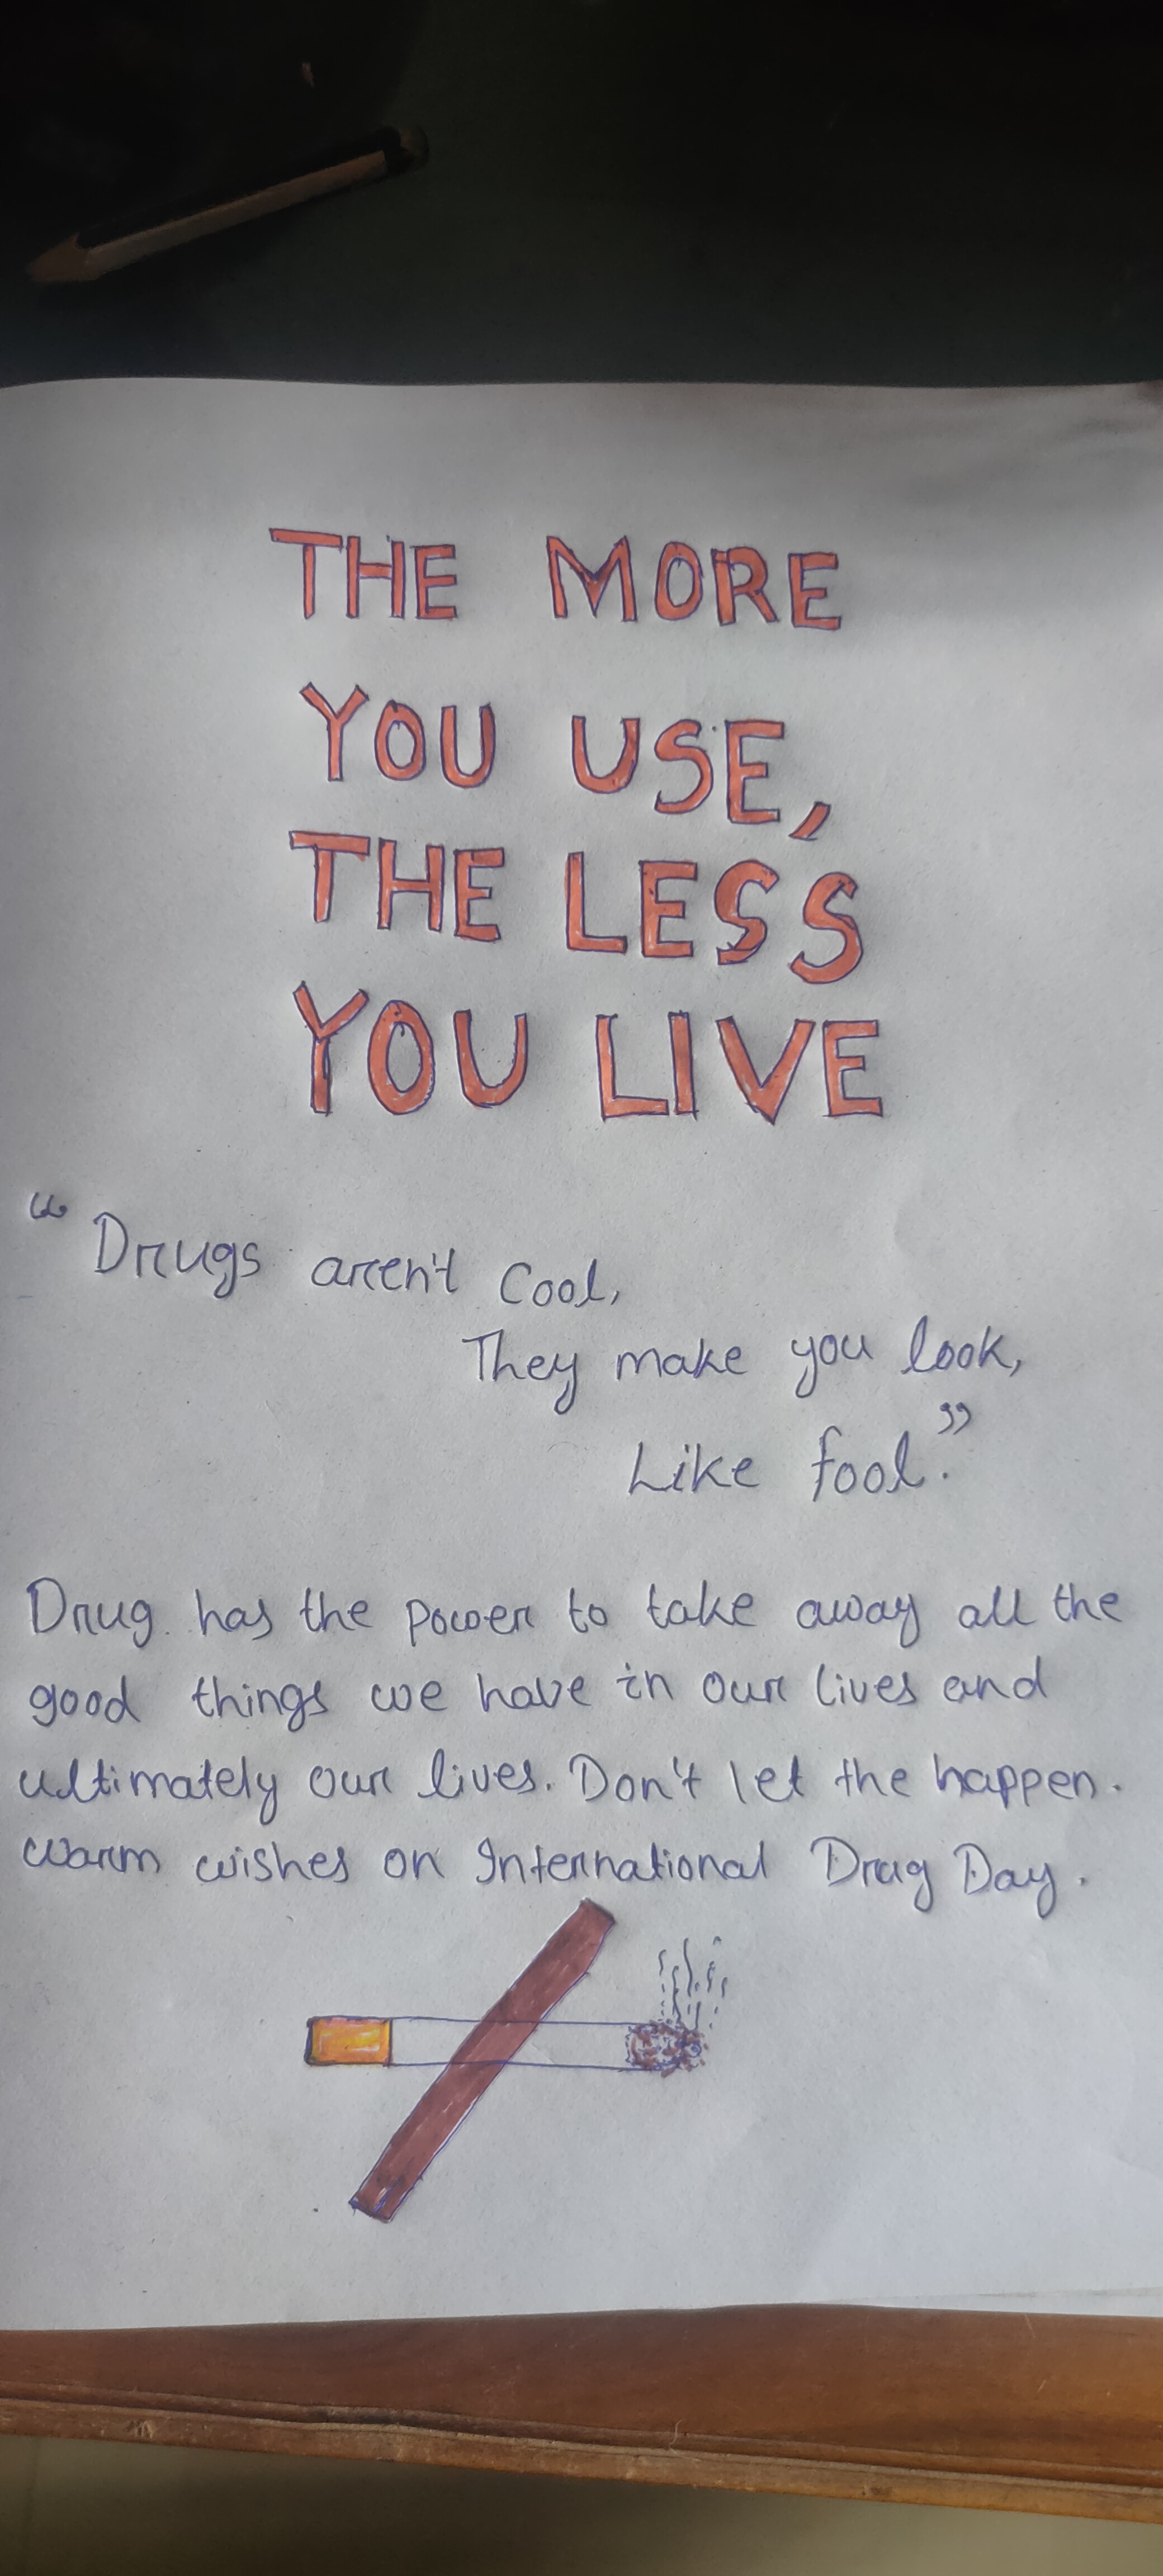 THE MORE
YOU USE,
THE LESS
YOU LIVE
“Drugs aren't Cool,
They make you look,
Like fool.”
Drug has the power to take away all the
good things we have in our lives and
ultimately our lives. Don't let the happen.
Warm wishes on International Drug Day.